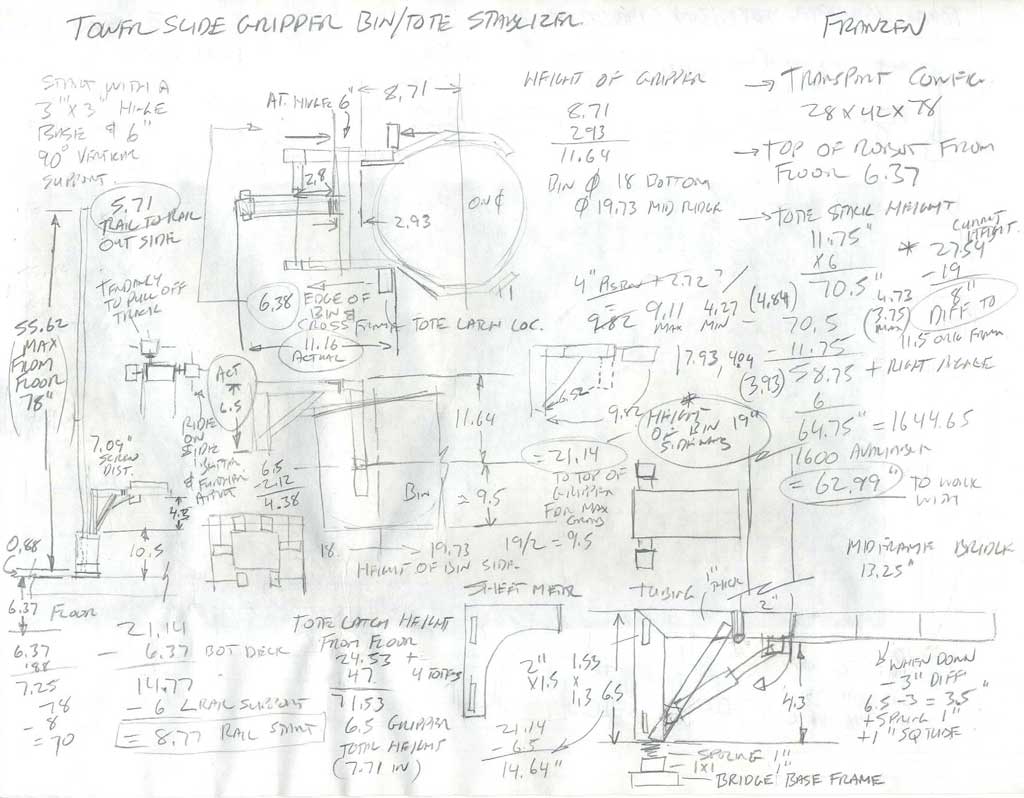 TOWER SLIDE GRIPPER BIN/TOTE STABLIZER.
FRANZEN
START WITH A
3" X 3" HINGE
BASE & 6"
90° VERTICAL
SUPPORT.
5.71
RAIL TO RAIL
OUT SIDE
TENDANCY
TO PULL OFF
TRACK
55.62
MAX
FROM
FLOOR
78"
7.09"
SCREW
DIST.
4.3
10.5
0.88
6.37 FLOOR
6.37
.88
7.25
-78
- 8
= 70
21.14
- 6.37 BOT DECK
14.77
- 6 RAIL SUPPORT
= 8.77 RAIL START
AT HINGE 6"
8.71
2.8
2.93
6.38
EDGE OF
BIN &
CROSS FRAME TOTE LATCH LOC.
11.16
ACTUAL
ACT
6.5
RIDE
ON
SIDE
6.5
-2.12
4.38
BIN
11.64
= 9.5
18 → 19.73
19/2 = 9.5
HEIGHT OF BIN SIDE.
HEIGHT OF GRIPPER
8.71
2.93
11.64
BIN Ø 18 BOTTOM
Ø 19.73 MID RIDGE
→ TRANSPORT CONFIG.
28 X 42 X 78
→ TOP OF ROBOT FROM
FLOOR 6.37
→ TOTE STACK HEIGHT
11.75"
X 6
70.5"
* 27.54
CURRENT
HEIGHT.
- 19
8"
DIFF TO
11.5 ORIG FRAM
4.73
(3.75)
MAX
+ 2.72
9.82
= 9.11
MAX
4.27
MIN
(4.84)
- 70.5
- 11.75
(3.93)
58.75
6
64.75" = 1644.65
1600
= 62.99" TO WORK
WITH
6.52
9.82
7.93
* HEIGHT
ON BIN 19"
= 21.14
TO TOP OF
GRIPPER
FOR MAX
GRAB
MIDFRAME BRIDGE
13.25"
TOTE LATCH HEIGHT
FROM FLOOR
24.53 +
47 4 TOTES
71.53
6.5 GRIPPER
TOTAL HEIGHT
(7.71 IN)
SHEET METAL
2" 1.53
X 1.5 X
1.3
6.5
21.14
- 6.5
14.64"
TUBING
1"
THICK
2"
4.3
WHEN DOWN
- 3" DIFF
6.5 - 3 = 3.5"
+ SPRING 1"
+ 1" SQ TUBE
SPRING 1"
1X1 1"
BRIDGE BASE FRAME